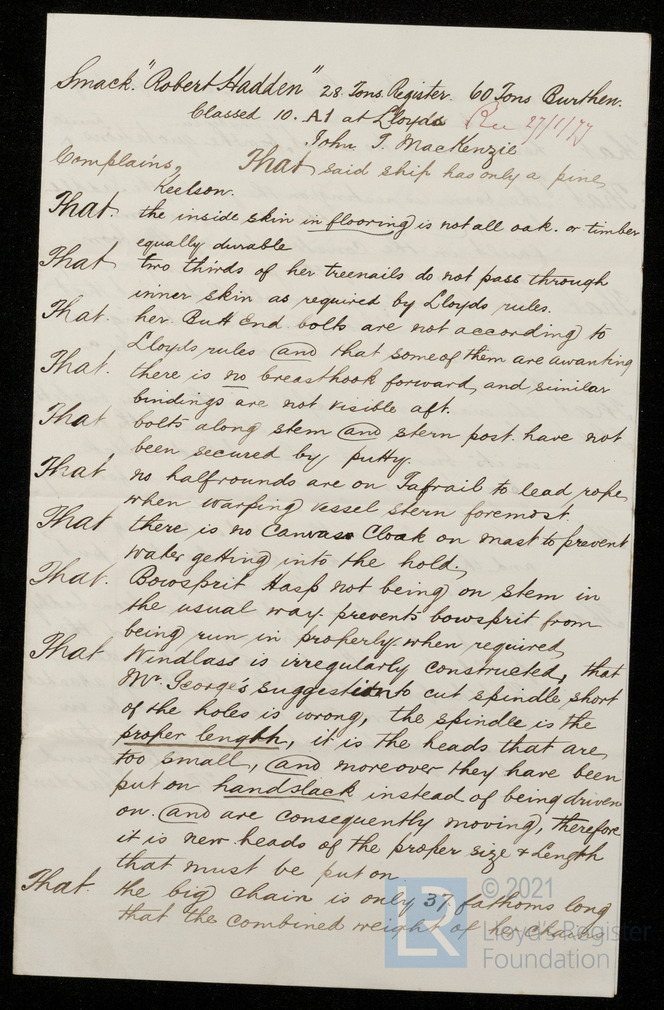 Smack. "Robert Hadden" 28 Tons Register. 60 Tons Burthen.
Classed 10. A1 at Lloyds Rec 27/1/77
John T. MacKenzie
Complains, That said ship has only a pine
Keelson.
That the inside skin in flooring is not all oak. or timber
equally durable
That two thirds of her treenails do not pass through
inner skin as required by Lloyds rules.
That. her Butt End bolts are not according to
Lloyds rules and that some of them are awanting
That. there is no breasthook forward, and similar
bindings are not visible aft.
That bolts along stem and stern post have not
been secured by putty.
That no halfrounds are on Tafrail to lead rope
when warping vessel stern foremost.
That there is no Canvass Cloak on mast to prevent
water getting into the hold.
That. Bowsprit Hasp not being on stem in
the usual way. prevents bowsprit from
being run in properly when required
That Windlass is irregularly constructed, that
Mr. George's suggestion to cut spindle short
of the holes is wrong, the spindle is the
proper length, it is the heads that are
too small, and moreover they have been
put on handslack instead of being driven
on. and are consequently moving, therefore
it is new heads of the proper size & Length
that must be put on
That. the big chain is only 37 fathoms long
that the combined weight of her chains
LR
© 2021
Lloyd's Register
Foundation